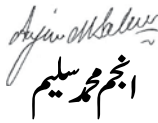 Anjum M Saleem
انجم محمد سلیم